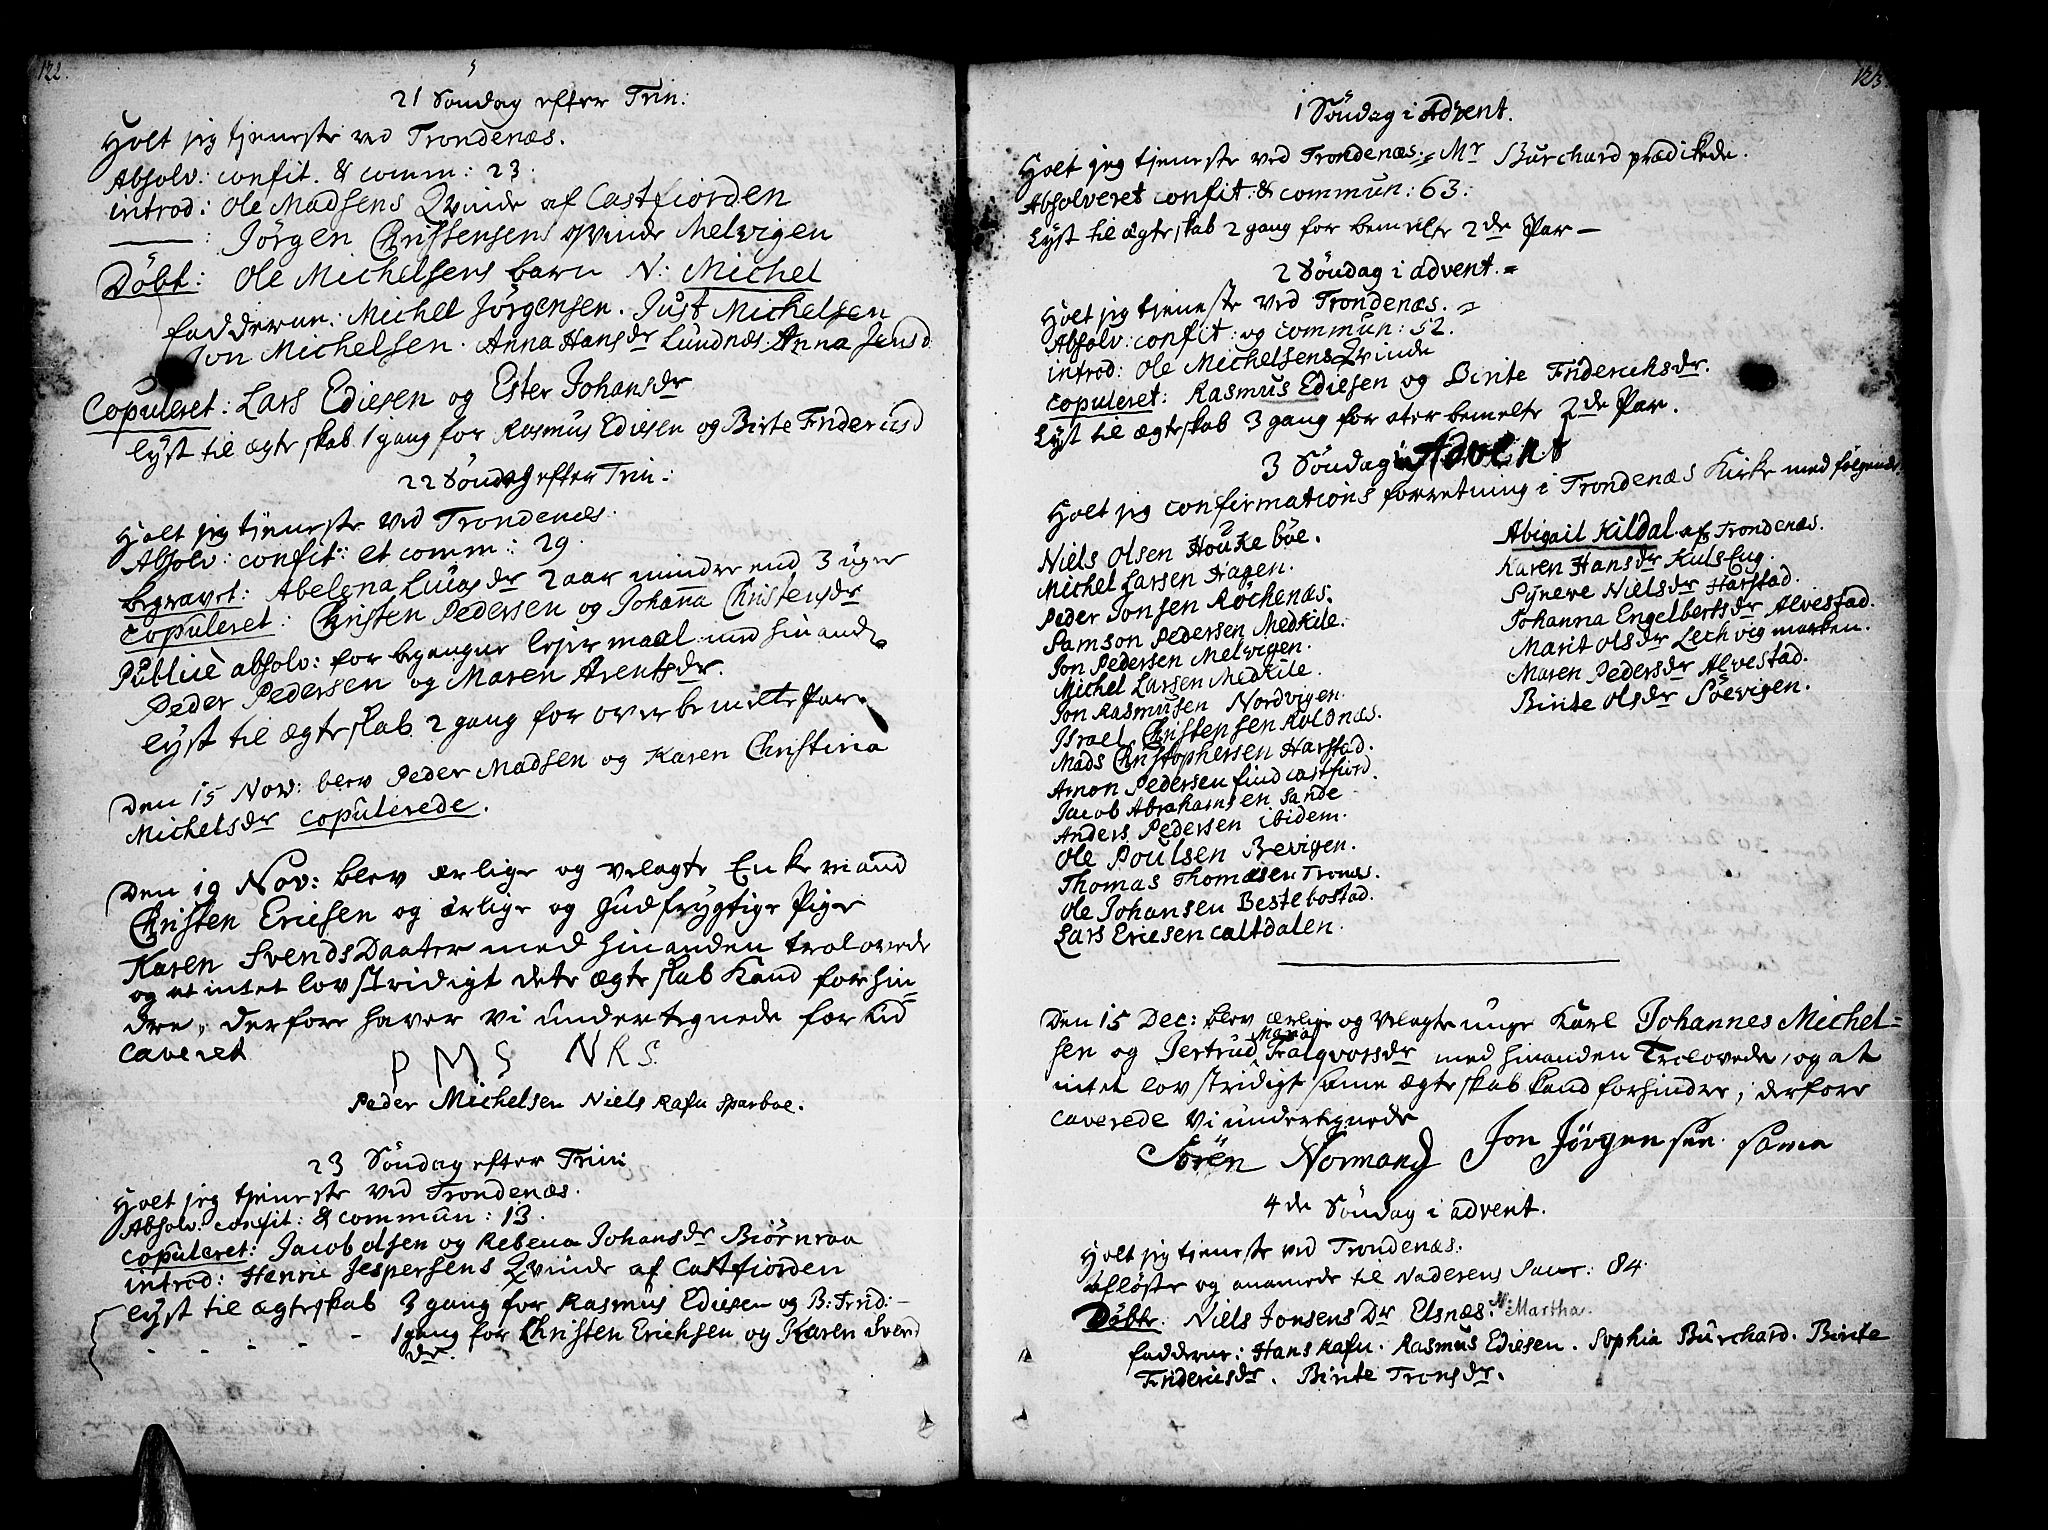 122.
21 Søndag efter Trin:
Holt jeg tjeneste ved Trondenæs.
Absolv: confit. & comm: 23.
introd: Ole Madsens Qvinde af Castfiorden
——— : Jörgen Christensens qvinde Melvigen
Döbt: Ole Michelsens barn N: Michel
fadderne: Michel Jörgensen. Just Michelsen
Jon Michelsen. Anna Hansdr Lundnes. Anna Jensd
Copuleret: Lars Ediesen og Ester Johansdr
lyst til ægteskab 1 gang for Rasmus Ediesen og Birte Fridericsd
22 Søndag efter Trin:
Holt jeg tjeneste ved Trondenæs.
Absolv: confit: et comm: 29.
begravet: Abelona Lucasdr 2 aar mindre end 3 uger
copuleret: Christen Pedersen og Johanna Christensdr
Publicè absolv: for begangne lejermaal med hinanden
Peder Pedersen og Maren Arentsdr.
lyst til ægteskab 2 gang for overbemelte Par.
Den 15 Nov: blev Peder Madsen og Karen Christina
Michelsdr copulerede.
Den 19 Nov: blev ærlige og velagte Enkemand
Christen Ericsen og ærlige og gudfrygtige Pige
Karen Svends Daater med hinanden trolovede
og at intet lovstridigt dete ægteskab kand forhin=
dre, derfore haver vi undertegnede forud
caveret
P M S N R S.
Peder Michelsen Niels Rafn Sparboe.
23 Söndag efter Trin:
Holt jeg tjeneste ved Trondenæs.
Absolv: confit: & commun: 13.
copuleret: Jacob Olsen og Rebecca Johansdr Biörnraa
introd: Henric Jespersens Qvinde af Castfiorden
lyst til ægteskab 3 gang for Rasmus Ediesen og B: Frid: —
- - - - - 1 gang for Christen Erichsen og Karen Svend
dr.
123.
1 Söndag i Advent.
Holt jeg tjeneste ved Trondenæs. = Mr Burchard prædikede.
Absolveret confit: & commun: 63:
Lyst til ægteskab 2 gang for bemelte 2de Par —
2 Söndag i advent. =
Holt jeg tjeneste ved Trondenæs. =
Absolv: confit: og commun: 52.
introd: Ole Michelsens Qvinde
copuleret: Rasmus Ediesen og Birite Friderichsdr.
Lyst til ægteskab 3 gang for ater bemelte 2de Par.
3 Söndag i Advent
Holt jeg confirmations forretning i Trondenæs Kirke med følgende
Niels Olsen Houkebøe.
Michel Larsen Hagen.
Peder Jonsen Röchenæs.
Samson Pedersen Medkile.
Jon Pedersen Melvigen.
Michel Larsen Medkile.
Jon Rasmusen Nordvigen.
Israel Christensen Roldnæs.
Mads Christophersen Harstad.
Amon Pedersen find castfiord.
Jacob Abrahamsen Sande
Anders Pedersen ibidem.
Ole Poulsen Bevigen.
Thomas Thomæsen Tronæs.
Ole Johansen Bestebostad.
Lars Ericsen caltdalen.
Abigail Kildal af Trondenæs.
Karen Hansdr Kulseng.
Syneve Nielsdr Harstad.
Johanna Engelbertsdr Alvestad.
Marit Olsdr Lechvigmarken.
Maren Pedersdr Alvestad.
Birite Olsdr Söevigen.
Den 15 Dec: blev ærlige og velagte unge Karl Johannes Michel=
sen og Jertrud Maria Tralqvorsdr med hinanden Trolovede, og at
intet lovstridigt same ægteskab kand forhindre, derfore
caverede vi undertegnede
Sören Normand Jon Jörgensen Sama
4de Söndag i advent.
Holt jeg tjeneste ved Trondenæs.
afløste og anamede til Naderens Sacr: 84.
Döbte. Niels Jonsens Dr Elsnæs. N: Martha
fadderne: Hans Rafn. Rasmus Ediesen. Sophia Burchard. Birite
Fridericsdr. Birite Tronsdr.